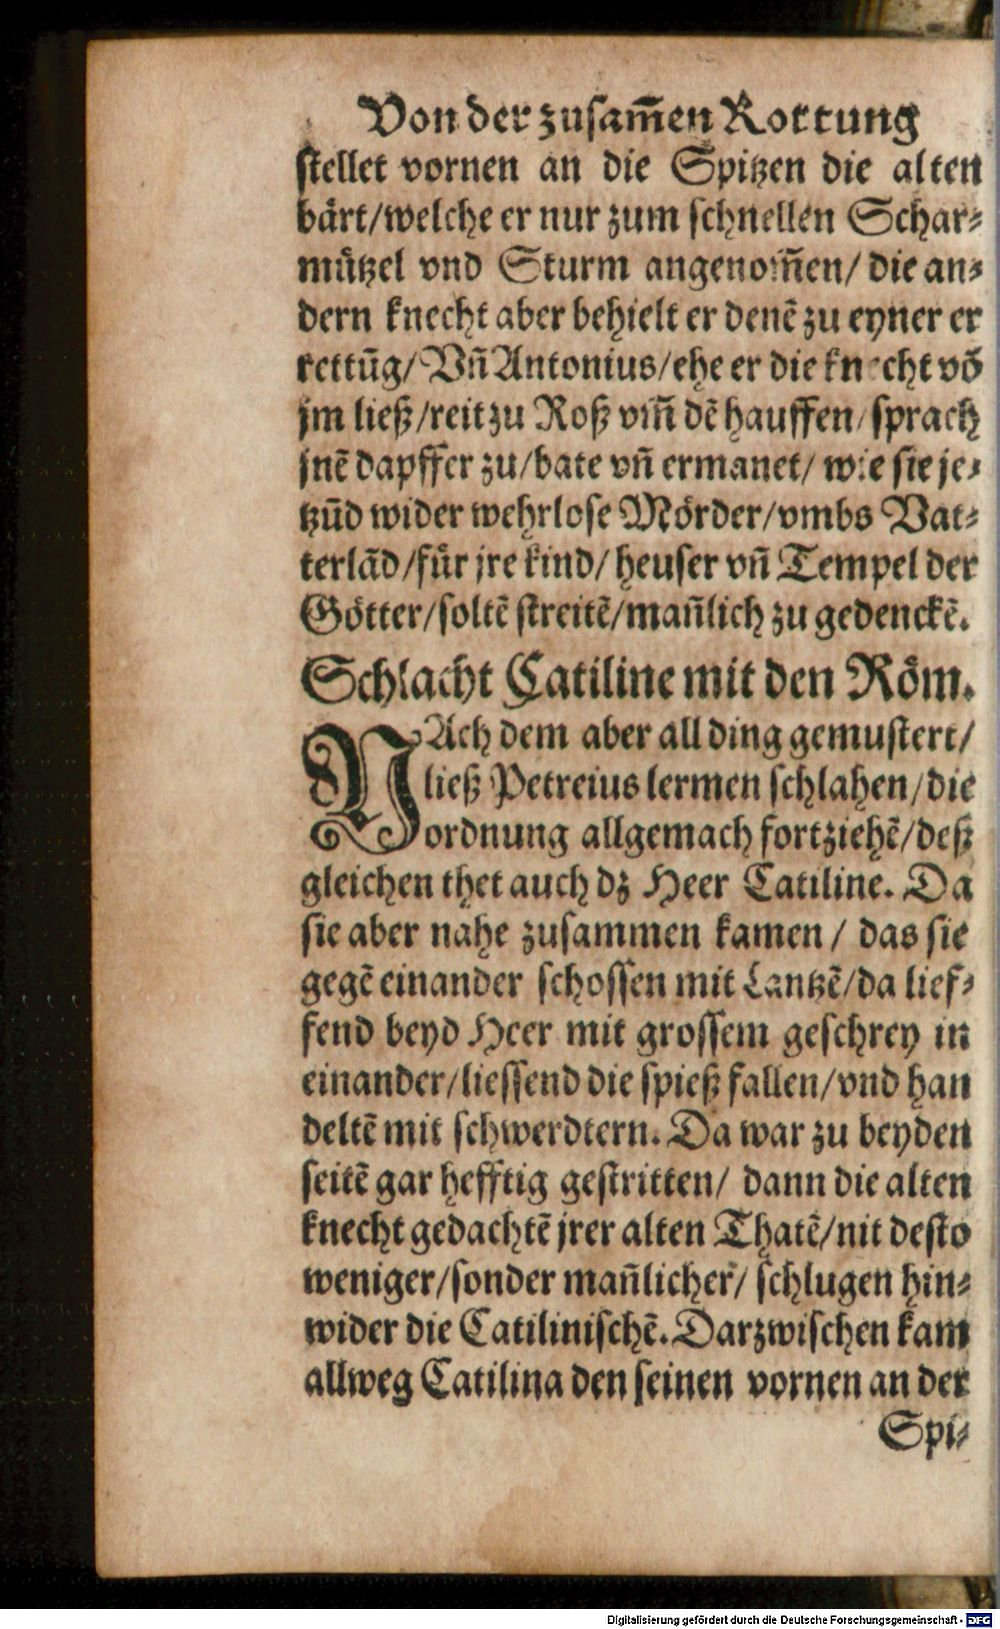 Von der zusam̄en Rottung
stellet vornen an die Spitzen die alten
bårt/welche er nur zum schnellen Schar⸗
můtzel vnd Sturm angenom̄en/ die an⸗
dern knecht aber behielt er denē zu eyner er
rettūg/ Vn̄ Antonius/ehe er die knecht vō
jm ließ/reit zu Roß vm̄ dē hauffen/ sprach
jnē dapffer zu/bate vn̄ ermanet/ wie sie je⸗
tzūd wider wehrlose Mörder/vmbs Vat⸗
terlād/für jre kind/ heuser vn̄ Tempel der
Götter/soltē streitē/man̄lich zu gedenckē.
Schlacht Catiline mit den Röm.
NAch dem aber all ding gemustert/
ließ Petreius lermen schlahen/die
ordnung allgemach fortziehē/deß
gleichen thet auch dz Heer Catiline. Da
sie aber nahe zusammen kamen / das sie
gegē einander schossen mit Lantzē/da lief⸗
fend beyd Heer mit grossem geschrey in
einander/liessend die spieß fallen/vnd han
deltē mit schwerdtern. Da war zu beyden
seitē gar hefftig gestritten/ dann die alten
knecht gedachtē jrer alten Thatē/nit desto
weniger/sonder man̄licher/ schlugen hin⸗
wider die Catilinischē. Darzwischen kam
allweg Catilina den seinen vornen an der
Spi⸗
Digitalisierung gefördert durch die Deutsche Forschungsgemeinschaft - DFG